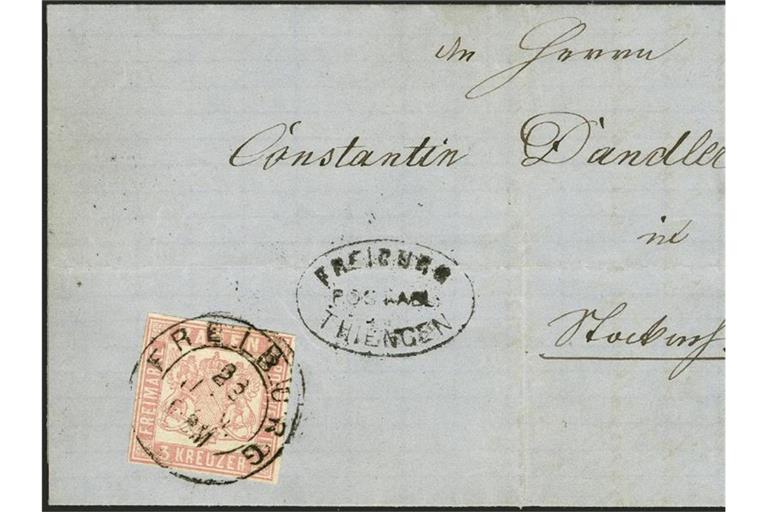 An Herrn
Constantin Dandler
in
FREIBURG
POSTABL.
THIENGEN
FREIBURG
23
BADEN
FREIMARKE
3 KREUZER